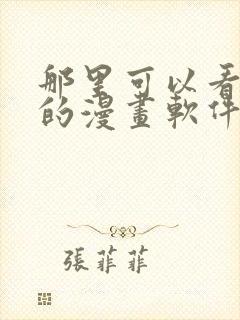 那里可以看
的漫畫軟件
張菲菲